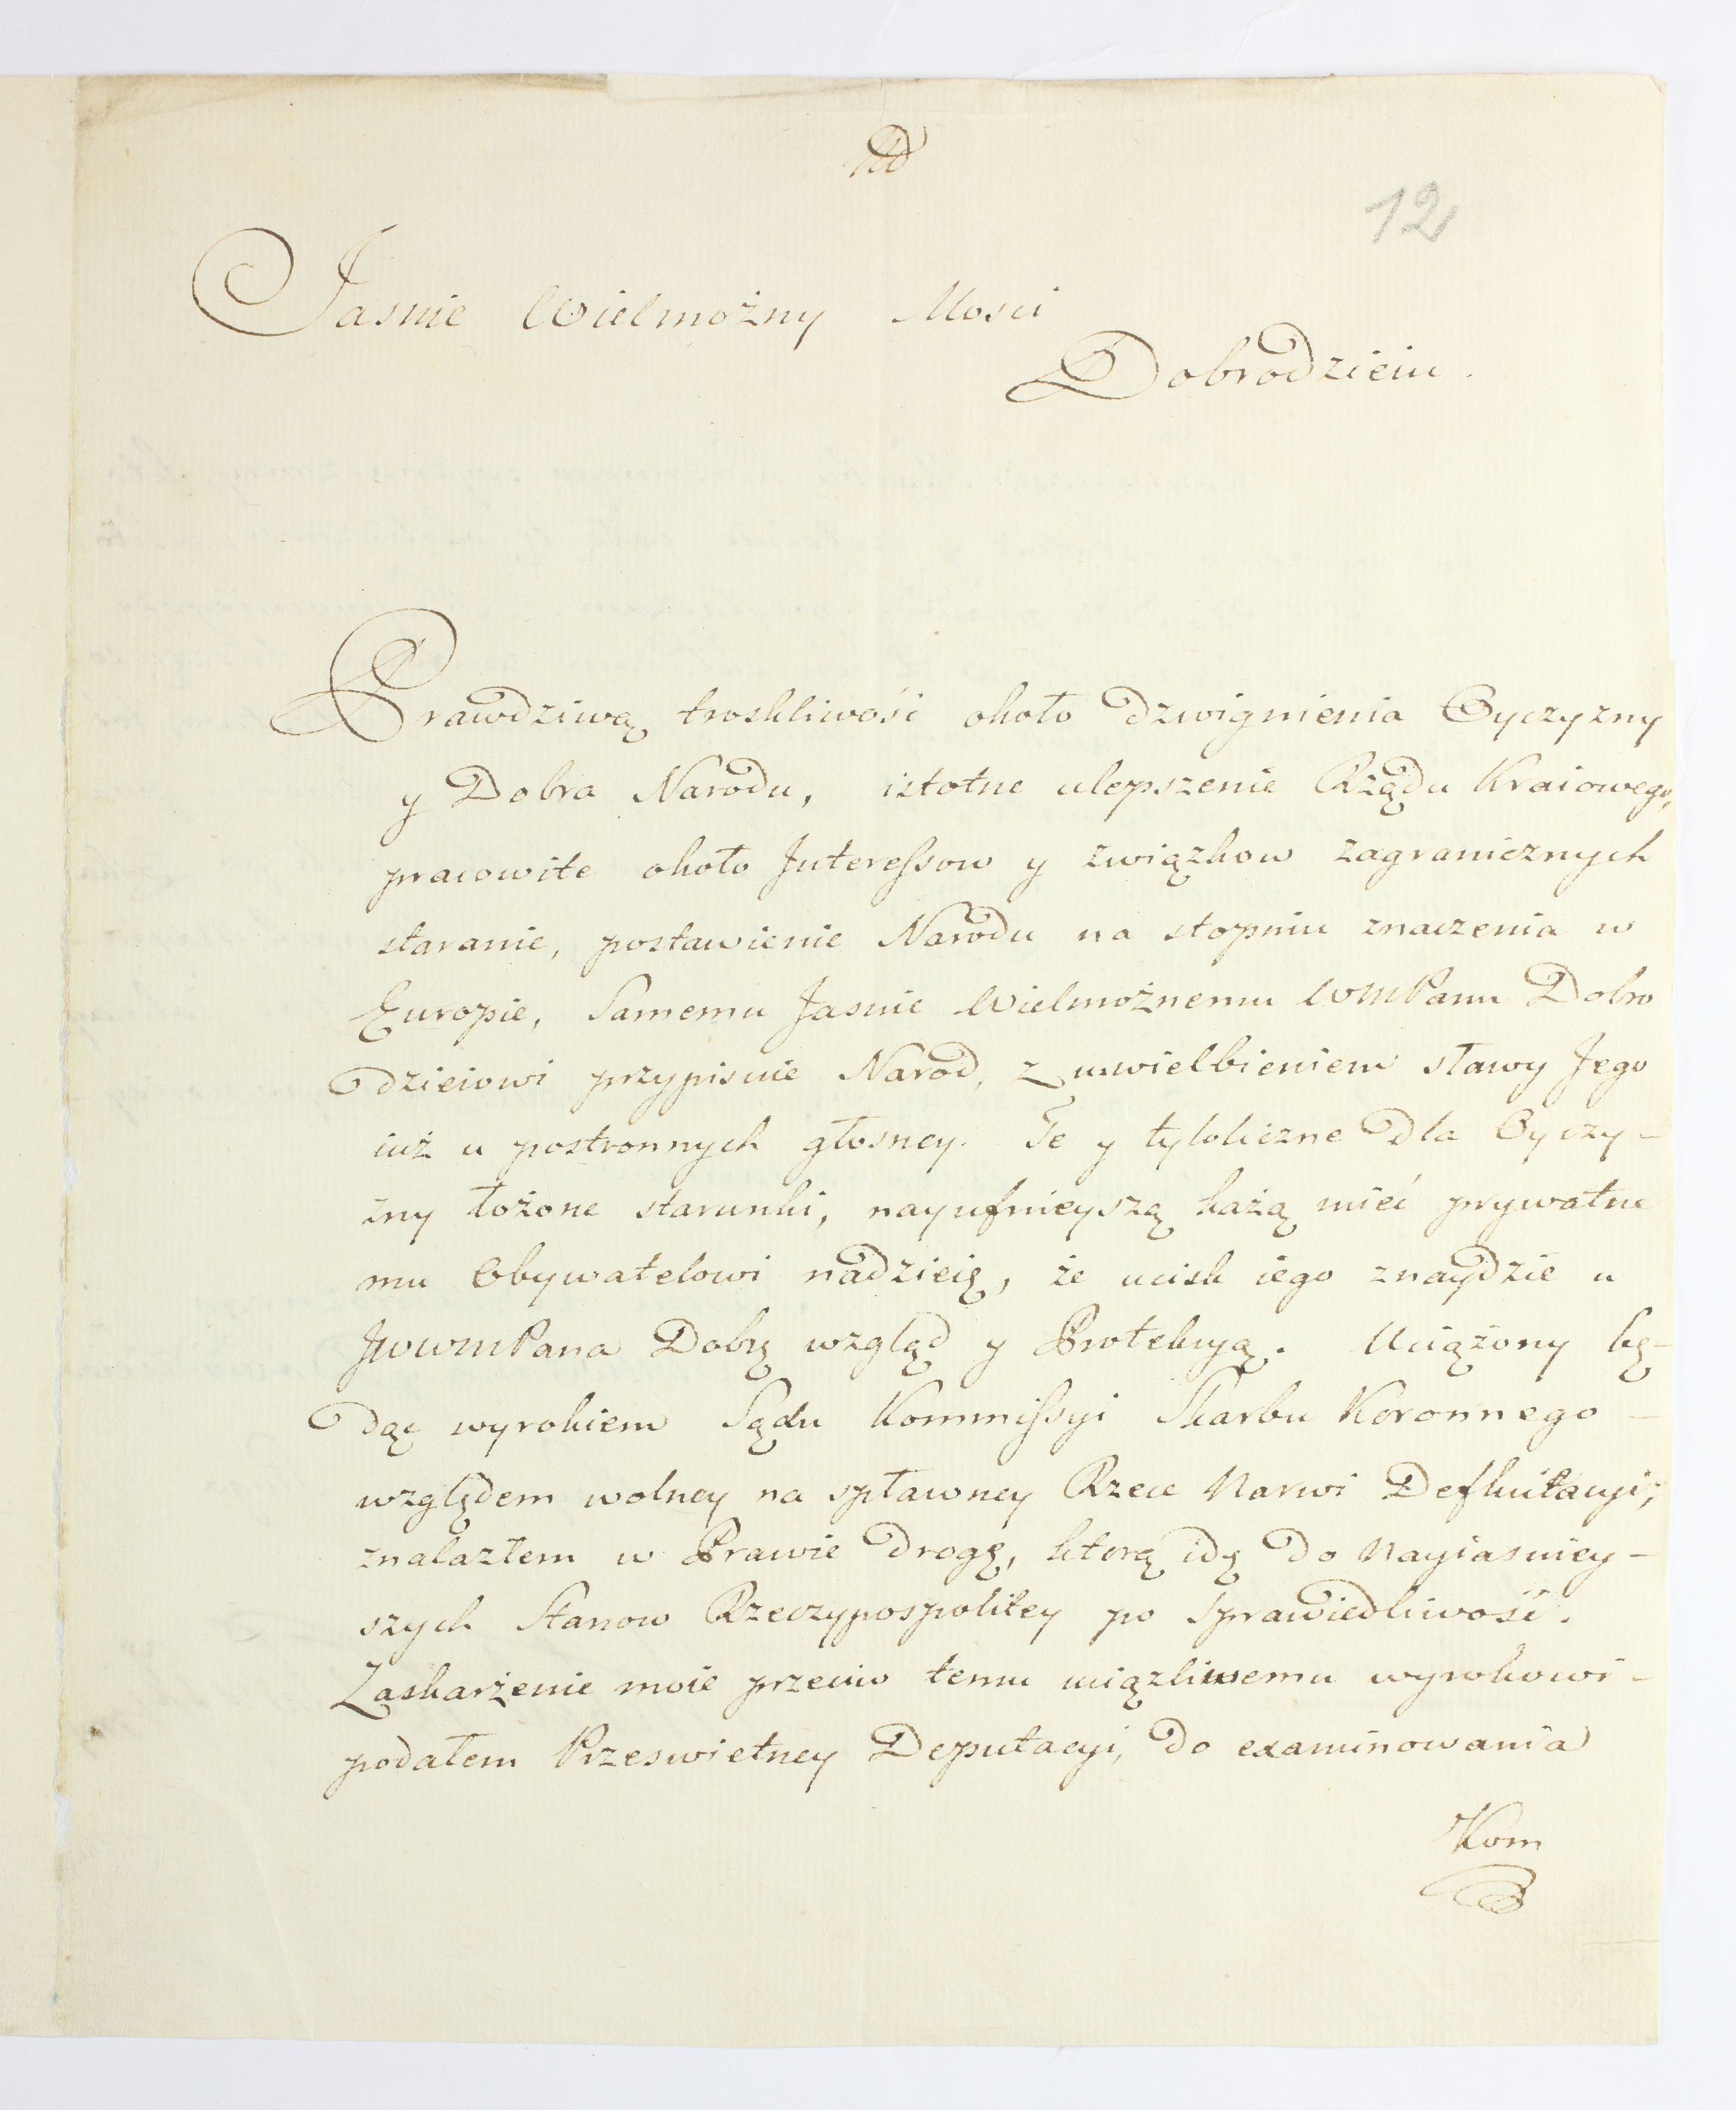 12
Jasnie Wielmożny Mosci
Dobrodzieiu.
Prawdziwą troskliwość około dzwignienia Oyczyzny
y Dobra Narodu, istotne ulepszenie Rządu Kraiowego,
pracowite około Interessow y związkow zagranicznych
staranie, postawienie Narodu na stopniu znaczenia w
Europie, Samemu Jasnie Wielmożnemu WMPanu Dobro
dzieiowi przypisuie Narod, z uwielbieniem sławy Jego
iuż u postronnych głosney. Te y tyloliczne dla Oyczy-
zny łożone starunki, nayufnieyszą każą mieć prywatne
mu Obywatelowi nadzieię, że ucisk iego znaydzie u
JWWMPana Dobrę wzgląd y Protekcyą. Uciążony bę-
dąc wyrokiem Sądu Kommissyi Skarbu Koronnego -
względem wolney na spławney Rzece Narwi Defluitacyi,
znalazłem w Prawie drogę, ktorą idę do Nayiasniey-
szych Stanow Rzeczypospolitey po sprawiedliwość.
Zaskarżenie moie przeciw temu uciążliwemu wyrokowi -
podałem Przeswietney Deputacyi, do examinowania
Kom